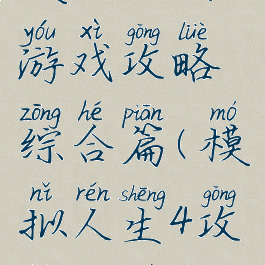 yóu xì gōng lüè
游戏攻略
zōng hé piān mó
综合篇(模
nǐ rén shēng gōng
拟人生4攻